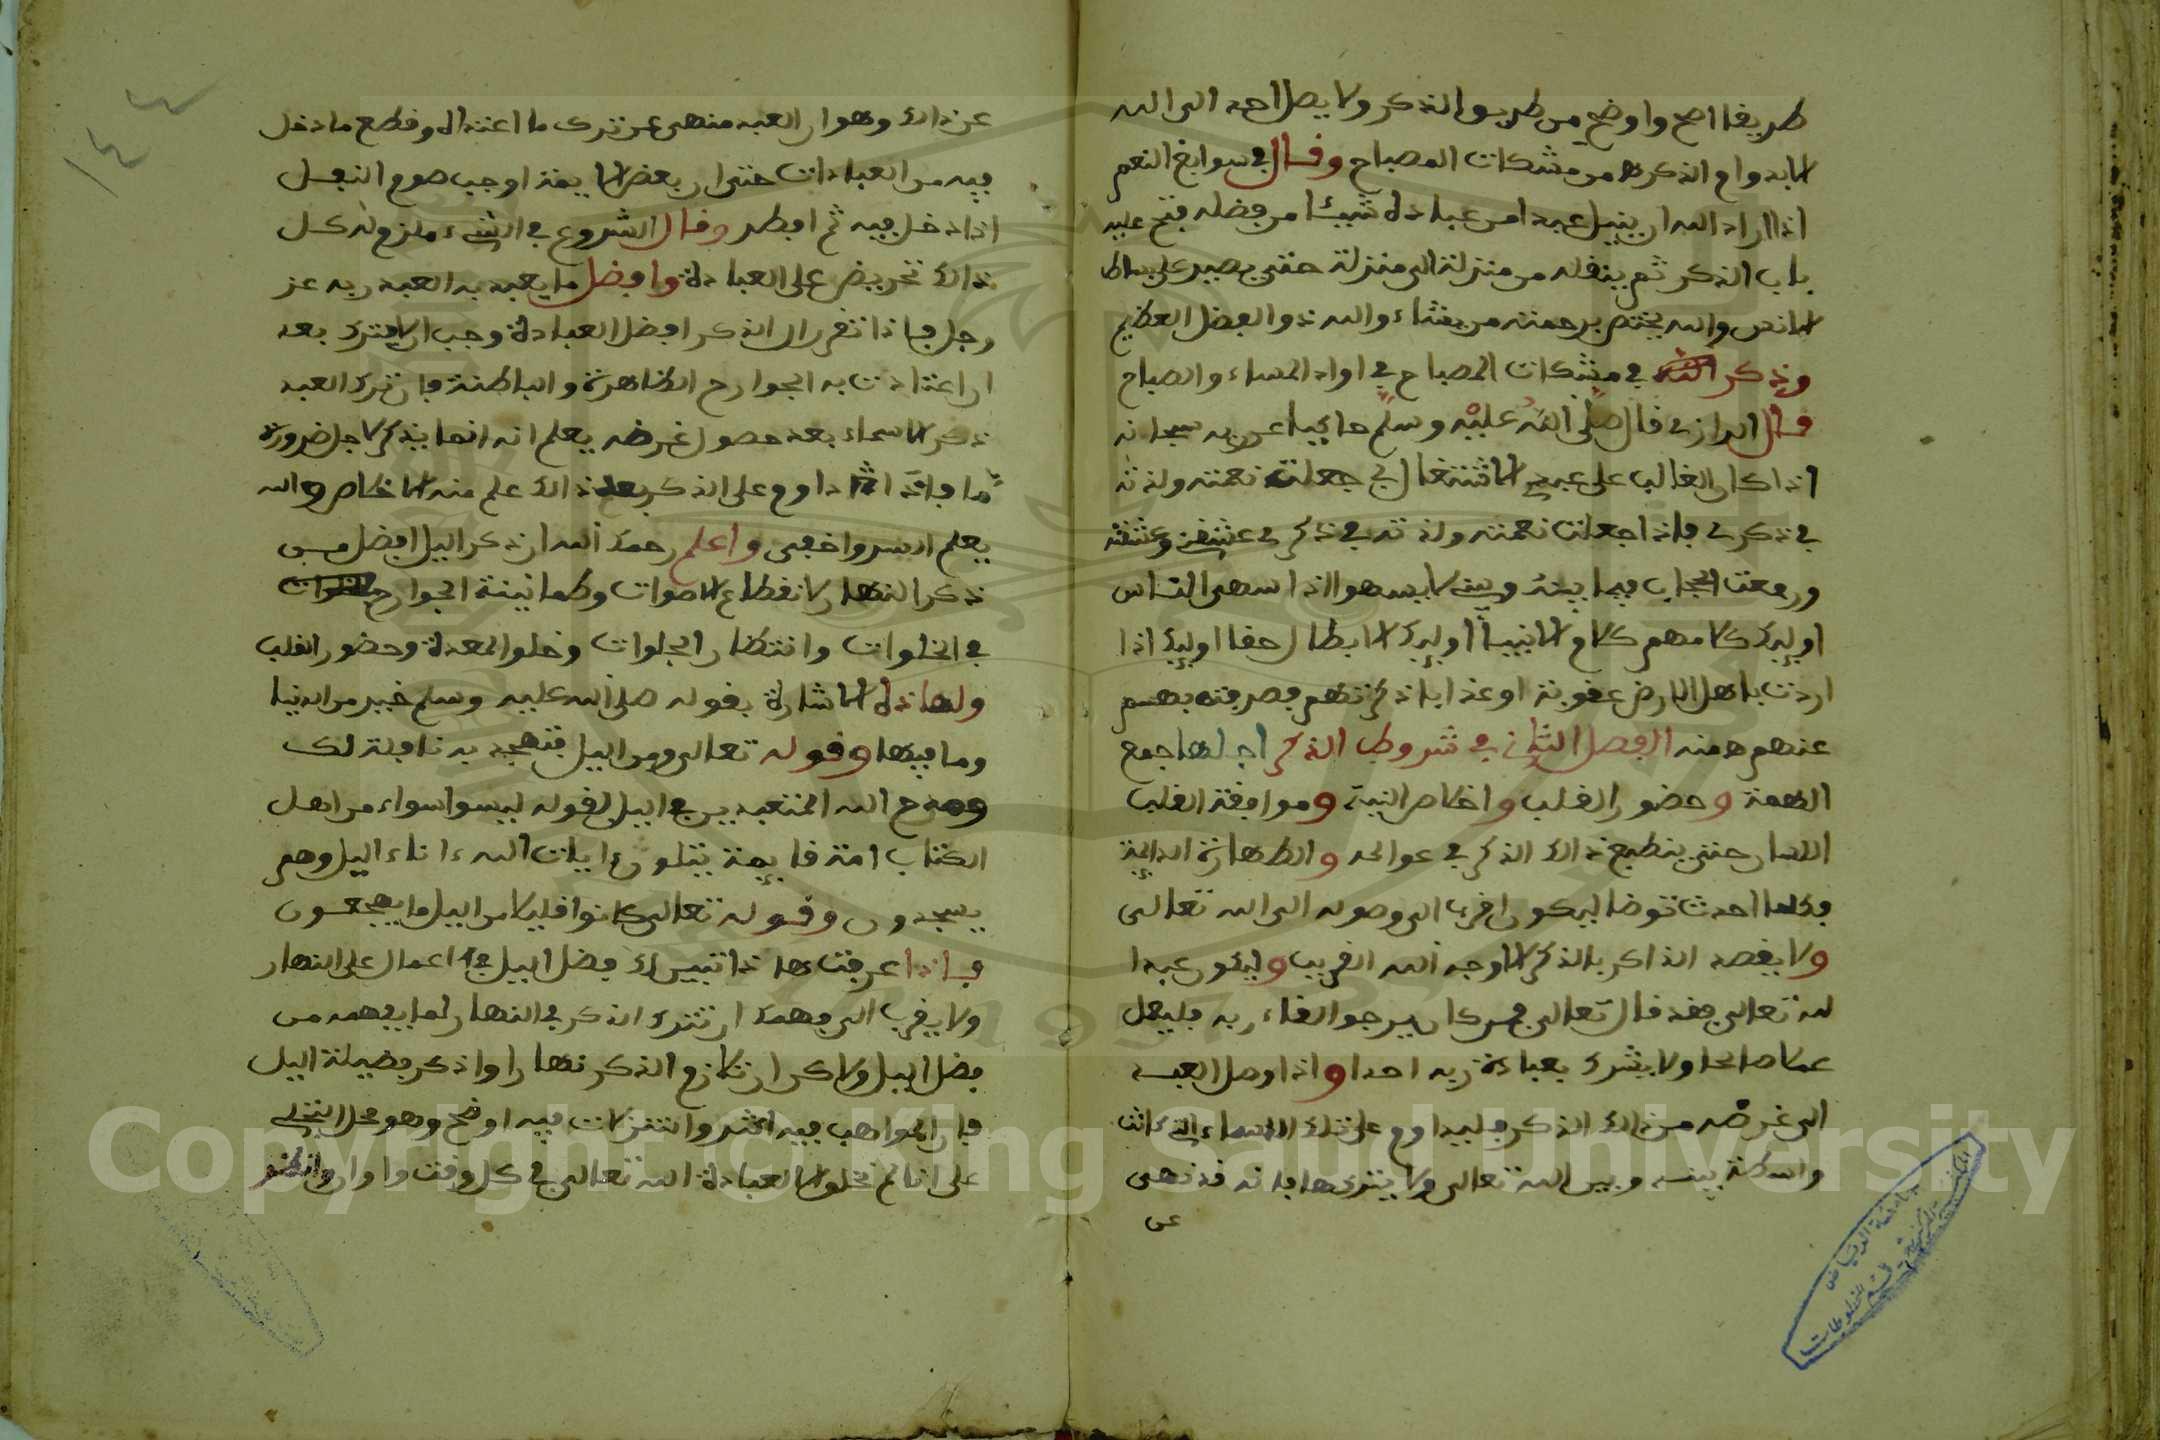 طريفا اصح واوضح من طريق الذكر ولا يصل احد الى الله
الا بدوام الذكر ه من مشكات المصباح وقال في سوابغ النعم
اذا اراد الله ان ينيل عبدا من عباده شيئا من فضله فتح عليه
باب الذكر ثم ينقله من منزلة الى منزلة حتى يصير على بساط
الانس والله يختص برحمته من يشاء والله ذو الفضل العظيم
وذكر في مشكات المصباح في اواد المساء والصباح
قال الرازي قال صلى الله عليه وسلم حاكيا عن ربه سبحانه
اذا كان الغالب على عبدي الاشتغال بي جعلت نعمته ولذته
في ذكري فاذا جعلت نعمته ولذته في ذكري عشقني وعشقته
ورفعت الحجاب فيما بيني وبينه لا يسهوا اذا سهى الناس
اوليك كلامهم كلام الانبياء اوليك الابطال حقا اوليك اذا
اردت باهل الارض عقوبة او عذابا ذكرتهم فصرفته بهم
عنهم ه منه الفصل الثاني في شروط الذكر اجلها جمع
الهمة وحضور القلب واخلاص النية وموافقة القلب
اللسان حتى ينطبع ذالك الذكر في عوالمه والطهارة الدايمة
وكلما احدث توضا ليكون اقرب الى وصوله الى الله تعالى
ولا يقصد الذاكر بالذكر الا وجه الله القريب وليكون عبدا
لله تعالى فقد قال تعالى فمن كان يرجوا لقاء ربه فليعمل
عملا صالحا ولا يشرك بعبادة ربه احدا واذا وصل العبد
الى غرضه من ذالك الذكر فليداوم على تلك الاسماء التي كانت
واسطة بينه وبين الله تعالى ولا يتركها فانه قد نهى
عن
عن ذالك وهو ان العبد منهى عن ترك ما اعتداه وقطع ما دخل
فيه من العبادات حتى ان بعض الايمة اوجب صوم النفل
اذا دخل فيه ثم افطر وقال الشروع في الشيء ملزم له كل
ذالك تحريض على العبادة وافضل ما يعبد به العبد ربه عز
وجل فاذا تقرر ان الذكر افضل العبادة وجب ان لا يترك بعد
ان اعتادت به الجوارح الظاهرة والباطنة فان ترك العبد
ذكر الاسماء بعد حصول غرضه يعلم انه انما يذكر لاجل ضرورة
ما فاذا داوم على الذكر بعد ذالك علم منه الاخلاص والله
يعلم السر واخفى واعلم رحمك الله ان ذكر اليل افضل من
ذكر النهار لانقطاع الاصوات وطمانينة الجوارح
في الخلوات وانتظار الجلوات وخلو المعدة وحضور القلب
ولهاذه الاشارة بقوله صلى الله عليه وسلم خير من الدنيا
وما فيها وقوله تعالى ومن اليل فتهجد به نافلة لك
ومدح الله المتعبدين في اليل بقوله ليسوا سواء من اهل
الكتاب امة قايمة يتلون ايات الله ءاناء اليل وهم
يسجدون وقوله تعالى كانوا قليلا من اليل ما يهجعون
فاذا عرفت هاذا تبين لك فضل اليل في اعمال على النهار
ولا يقرب الى فهمك ان تترك الذكر في النهار لما يفهمه من
فضل اليل ولاكن ان تلازم الذكر نهارا واذكر فضيلة اليل
فان المواهب فيه اكثر والتنزلات فيه اوضح وهو محل التجلي
على انا لم نخلوا الا لعبادة الله تعالى في كل وقت واوان وانظر
١٤٤
Copyright © King Saud University
جامعة الرياض
قسم المخطوطات